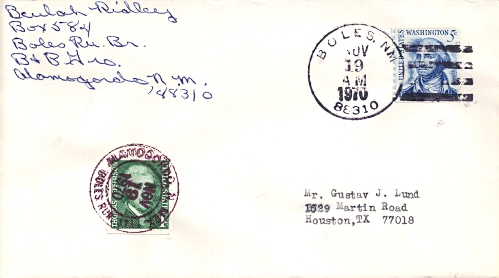 Beulah Ridley
Box 584
Boles Ru. Br.
B+B Hro.
Alamogordo N.M.
88310
BOLES, NM
NOV
19
AM
1970
88310
WASHINGTON 5c
UNITED STATES
ALAMOGORDO, N.
NOV
19
1970
BOLES RUR
Mr. Gustav J. Lund
1529 Martin Road
Houston,TX 77018